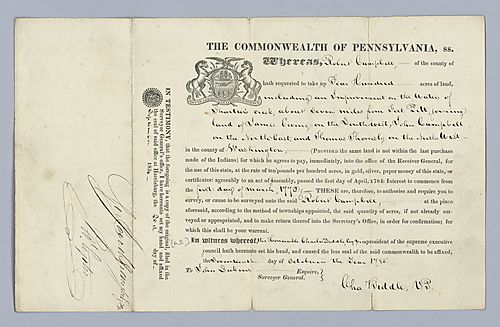 THE COMMONWEALTH OF PENNSYLVANIA, ss.
Whereas, Robert Campbell — of the county of
hath requested to take up Four Hundred acres of land,
including an Improvement on the Water of
about Seven miles from Fort Pitt, joining
land of on the Southeast, John Campbell
on the North East and Thomas on the
in the county of Washington (PROVIDED the same land is not within the last purchase
made of the Indians) for which he agrees to pay, immediately, into the office of the Receiver General, for
the use of this state, at the rate of ten pounds per hundred acres, in gold, silver, paper money of this state, or
certificates; agreeably to an act of Assembly, passed the first day of April, 1784: Interest to commence
from the first day of march, 1773; — THESE are, therefore, to authorise and require you to
survey, or cause to be surveyed unto the said Robert Campbell, at the place
aforesaid, according to the method of townships appointed, the said quantity of acres, if not already sur-
veyed or appropriated, and to make return thereof into the Secretary's Office, in order for confirmation; for
which this shall be your warrant.
In witness whereof the honorable Charles Biddle Esq vice president of the supreme executive
council hath hereunto set his hand, and caused the less seal of the said commonwealth to be affixed,
the Seventeenth day of October in the Year 178
To John Lukens Esquire,
Surveyor General.
Cha Biddle, V.P.
IN TESTIMONY, that the foregoing is a copy of the original filed in the
Surveyor General's office, I have hereunto set my hand and affixed
the seal of said office at Harrisburg, the day of
183